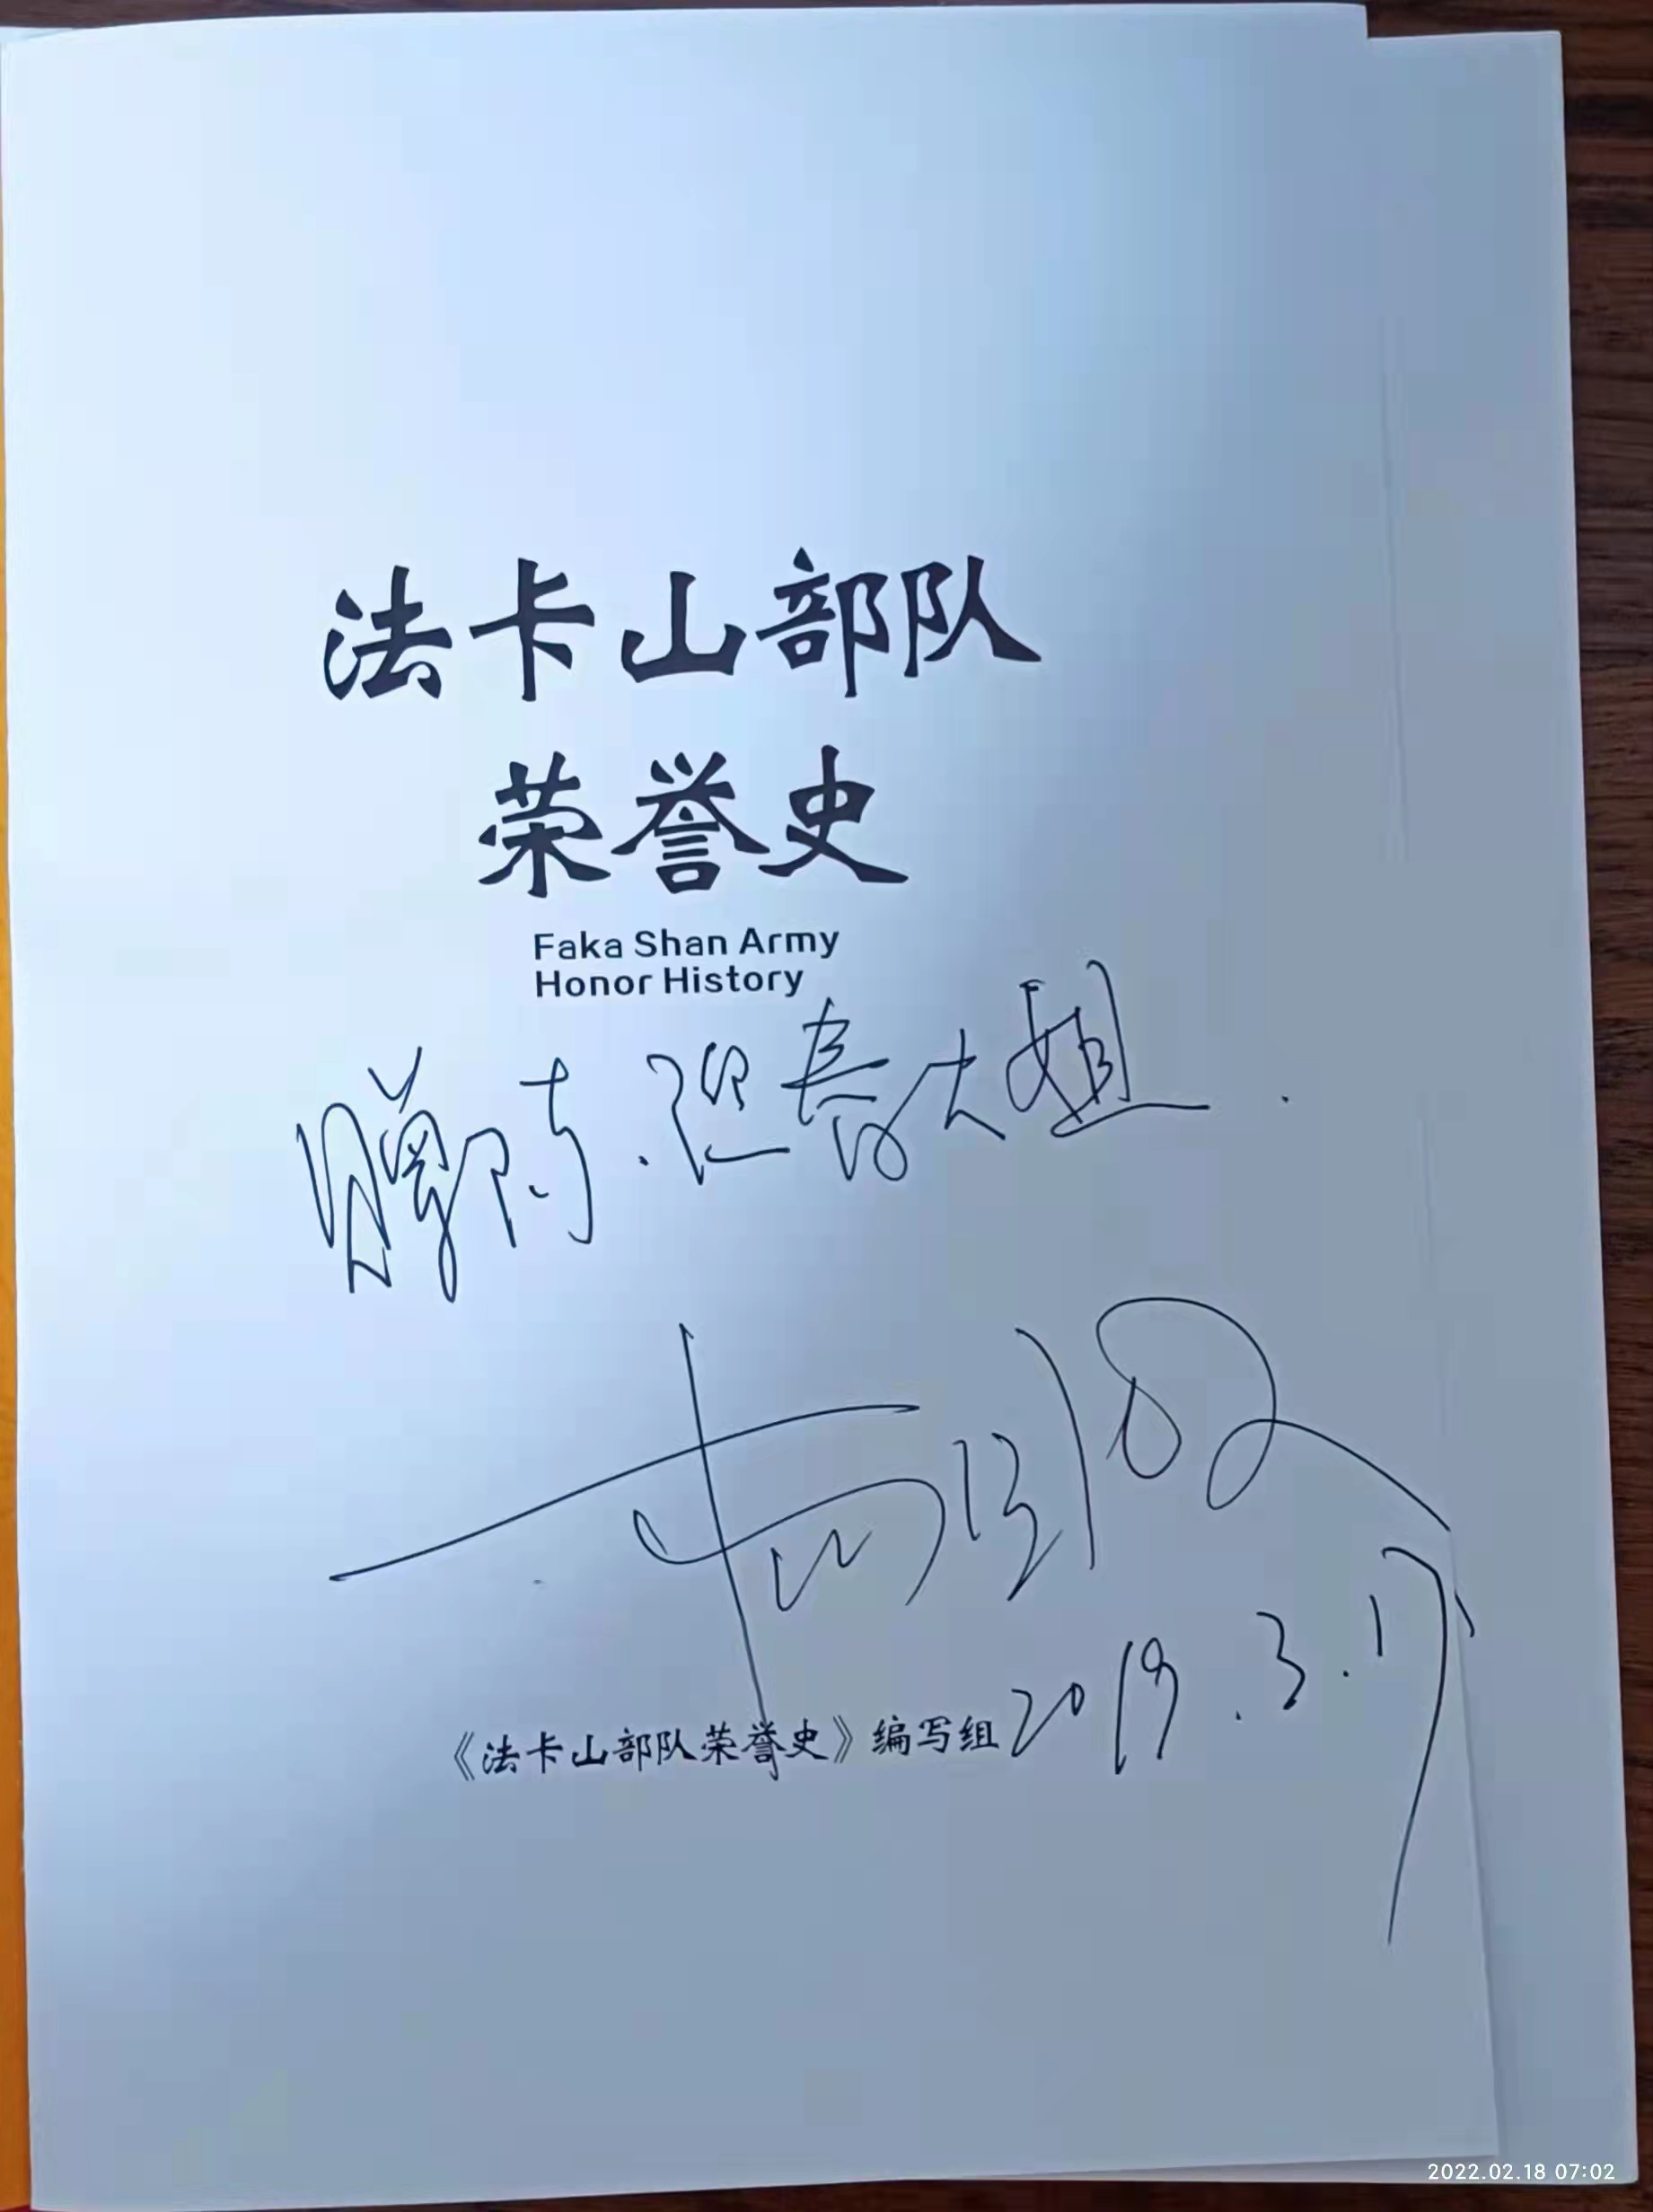 法卡山部队
荣誉史
Faka Shan Army
Honor History
赠阿迎春大姐.
《法卡山部队荣誉史》编写组
2019.3.17
2022.02.18 07:02